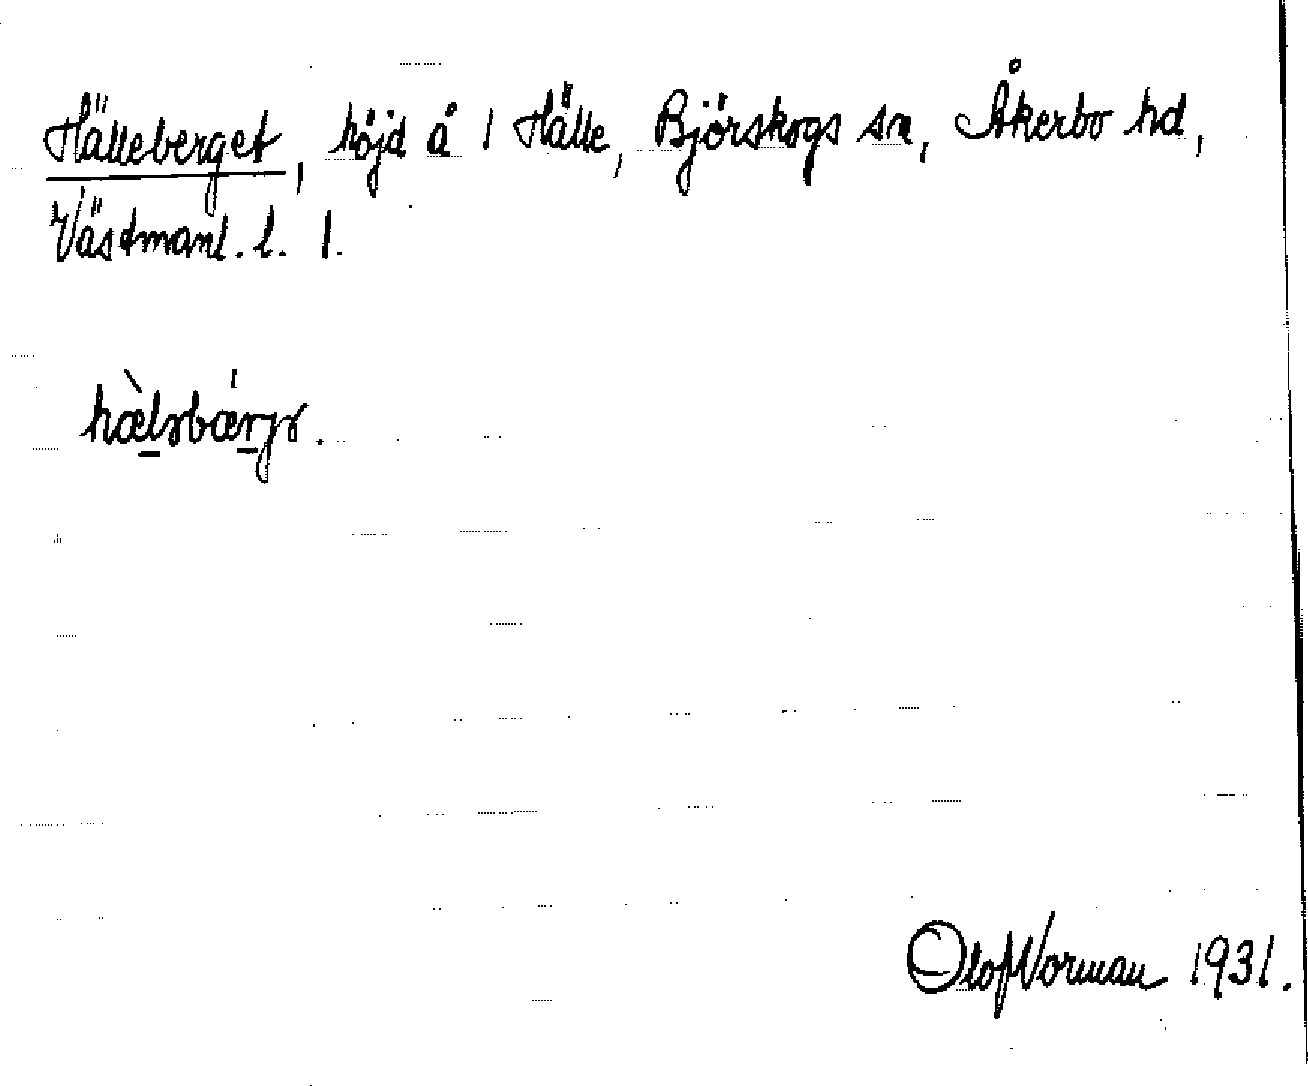 Hälleberget, höjd å 1 Hälle, Björskogs sn, Åkerbo hd,
Västmanl. l. 1.
hæ̀lɘbǽrjɘ.
Olof Norman 1931.